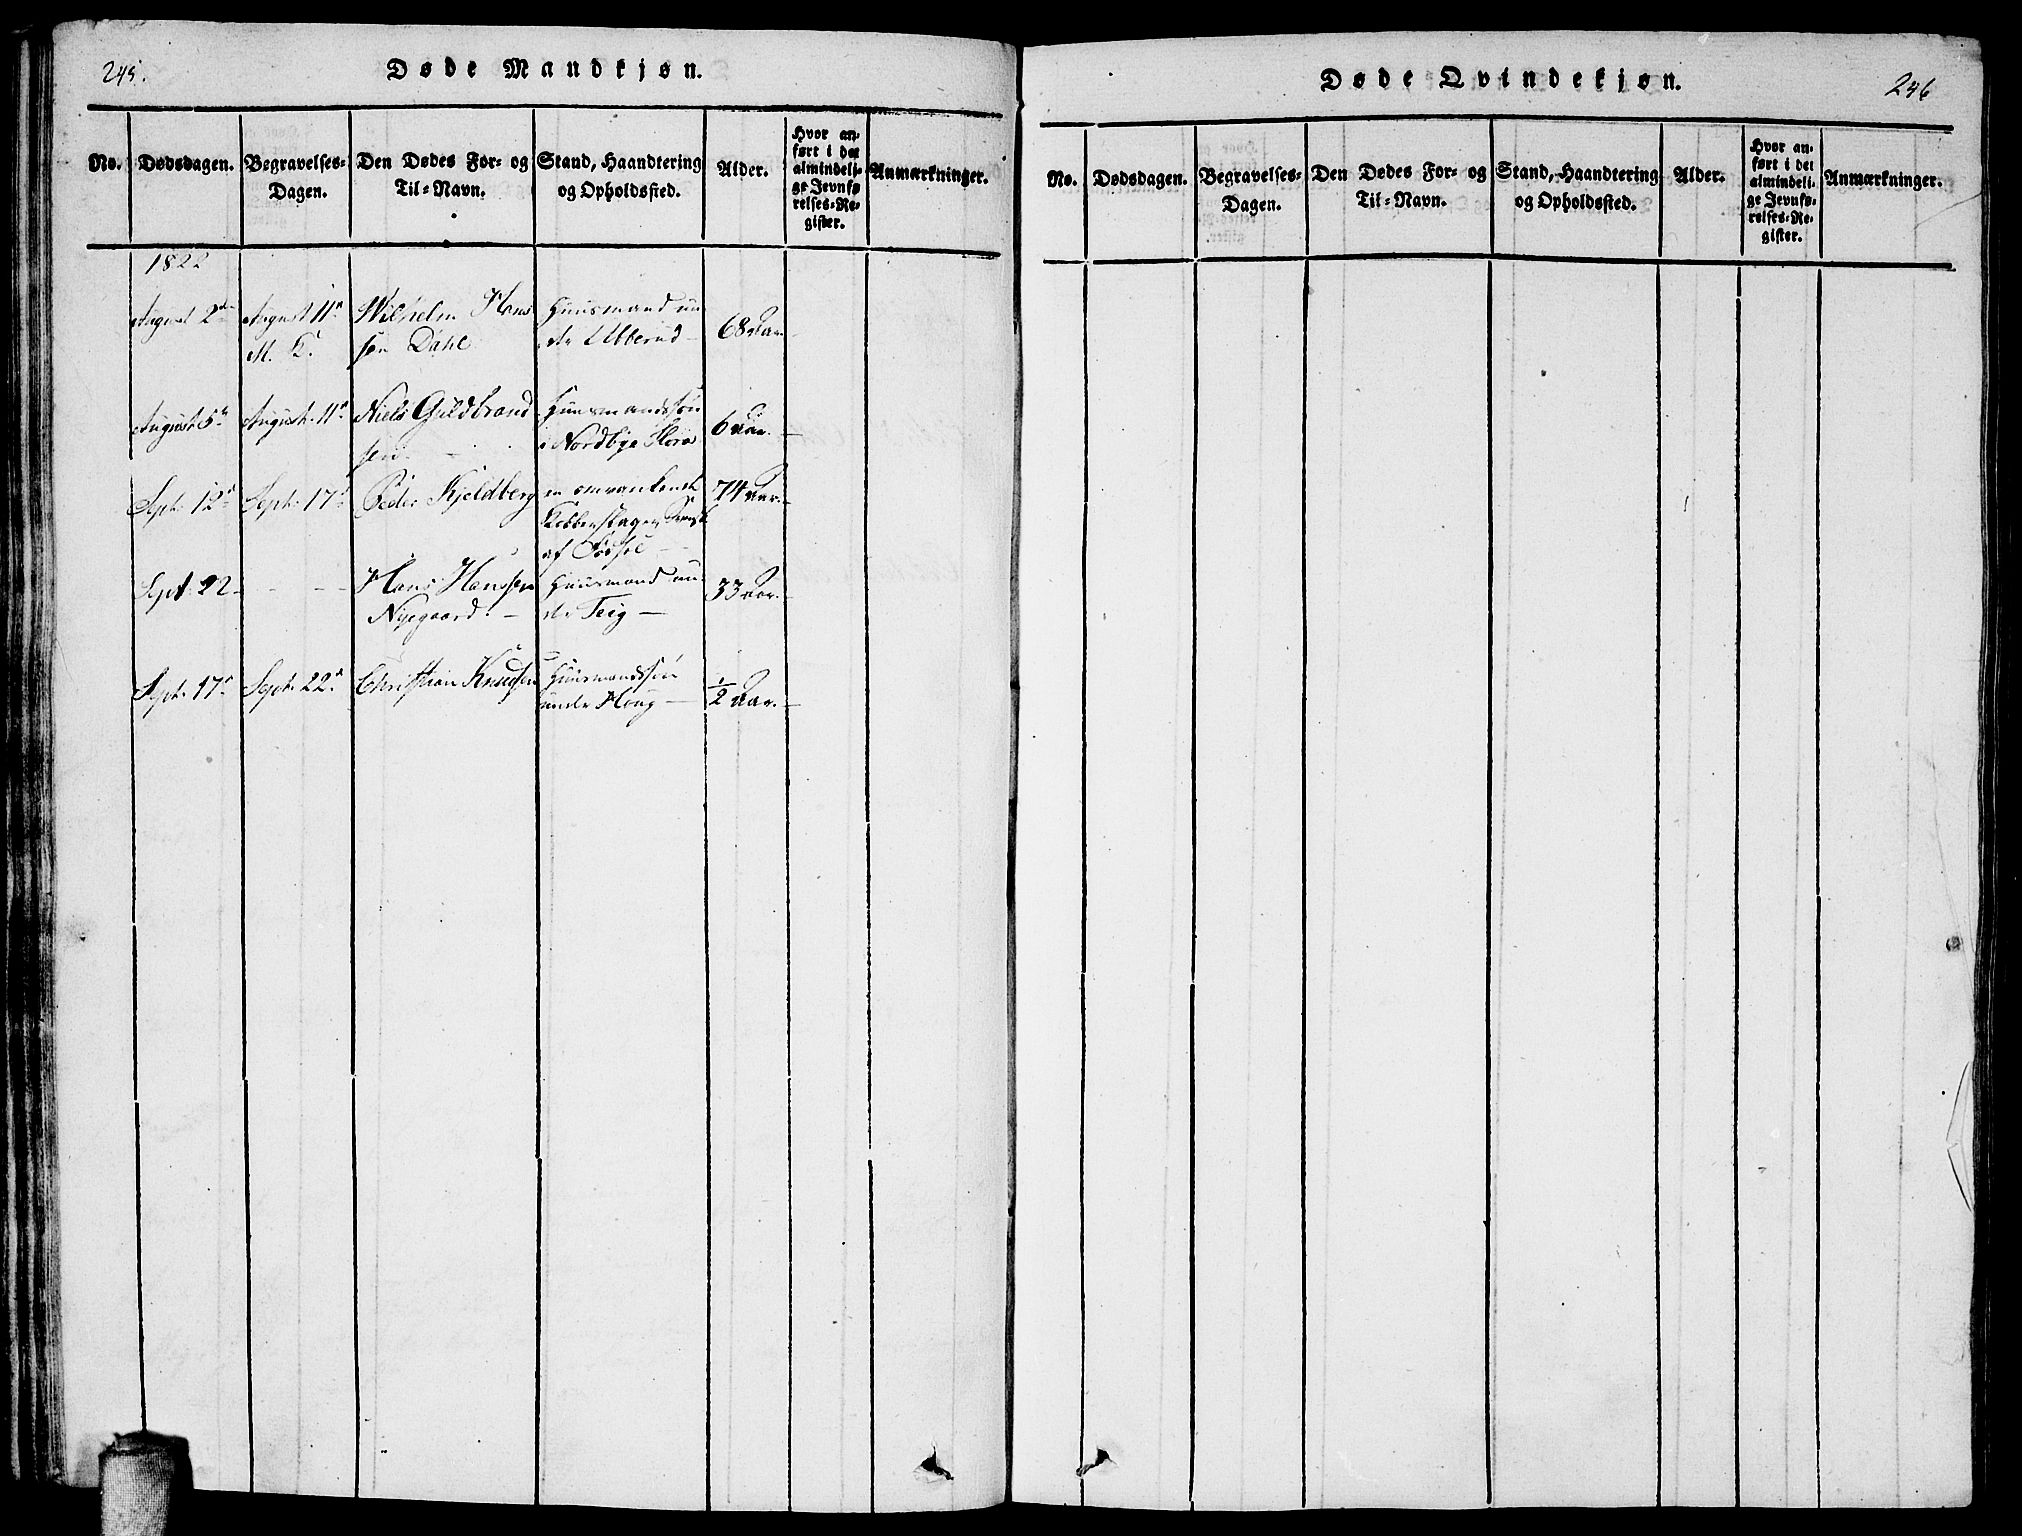 245.
Døde Mandkjøn.
No.
Dødsdagen.
Begravelses-
Dagen.
Den Dødes For- og
Til-Navn.
Stand, Haandtering
og Opholdssted.
Alder.
Hvor an-
ført i det
almindeli-
ge Jevnfø
relses-Re-
gister.
Anmærkninger.
1822
August 2den
August 11te
Wilhelm Hans
68 Aar
Huusmand un
M. K.
sen Dahl
der Ulberud
August 5te
August. 11te
Niels Guldbrand
sen.
Huusmandssøn
i Nordbye
6 Aar.
Sept. 12te
Sept. 17de
Peder Kjeldberg
en omvankende
Kobberslager, Svensk
af Fødsel
74 Aar.
Sept. 22
Hans Hanssen
Nyegaard.
Huusmand un
der Teig
33 Aar.
Sept. 17de
Sept. 22de
Christian Knudsen
Huusmandssøn
under Houg
1/2 Aar.
Døde Qvindekjøn.
246
No.
Dødsdagen.
Begravelses-
Dagen.
Den Dødes For- og
Til-Navn.
Stand, Haandtering
og Opholdssted.
Alder.
Hvor an-
ført i det
almindeli-
ge Jevnfø-
relses-Re-
gister.
Anmærkninger.